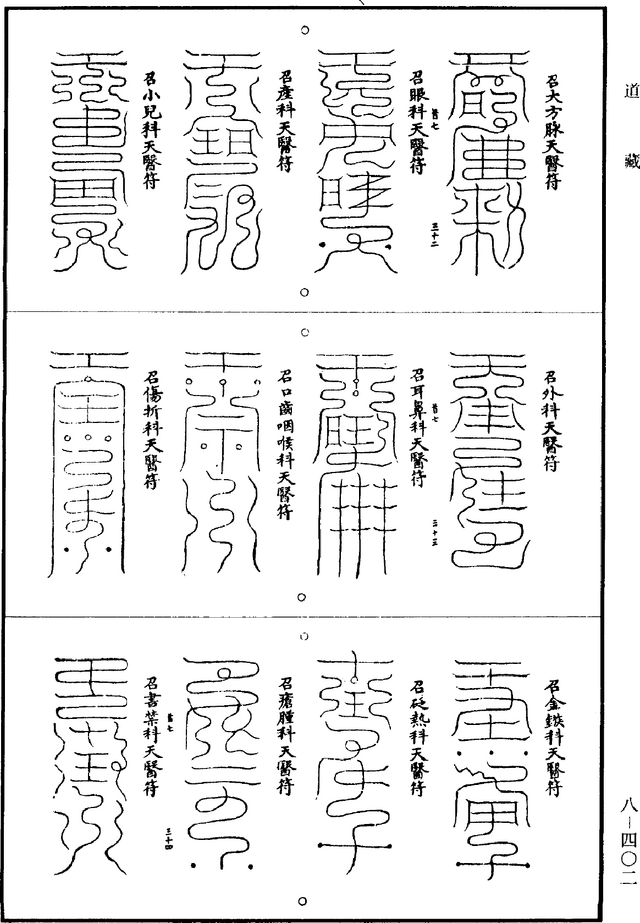 道藏
召大方脉天醫符
召眼科天醫符
昔七
三十二
召產科天醫符
召小兒科天醫符
召外科天醫符
召耳鼻科天醫符
昔七
三十三
召口齒咽喉科天醫符
召傷折科天醫符
召金鏃科天醫符
召砭熱科天醫符
召瘡腫科天醫符
召書禁科天醫符
昔七
三十四
八-四〇二